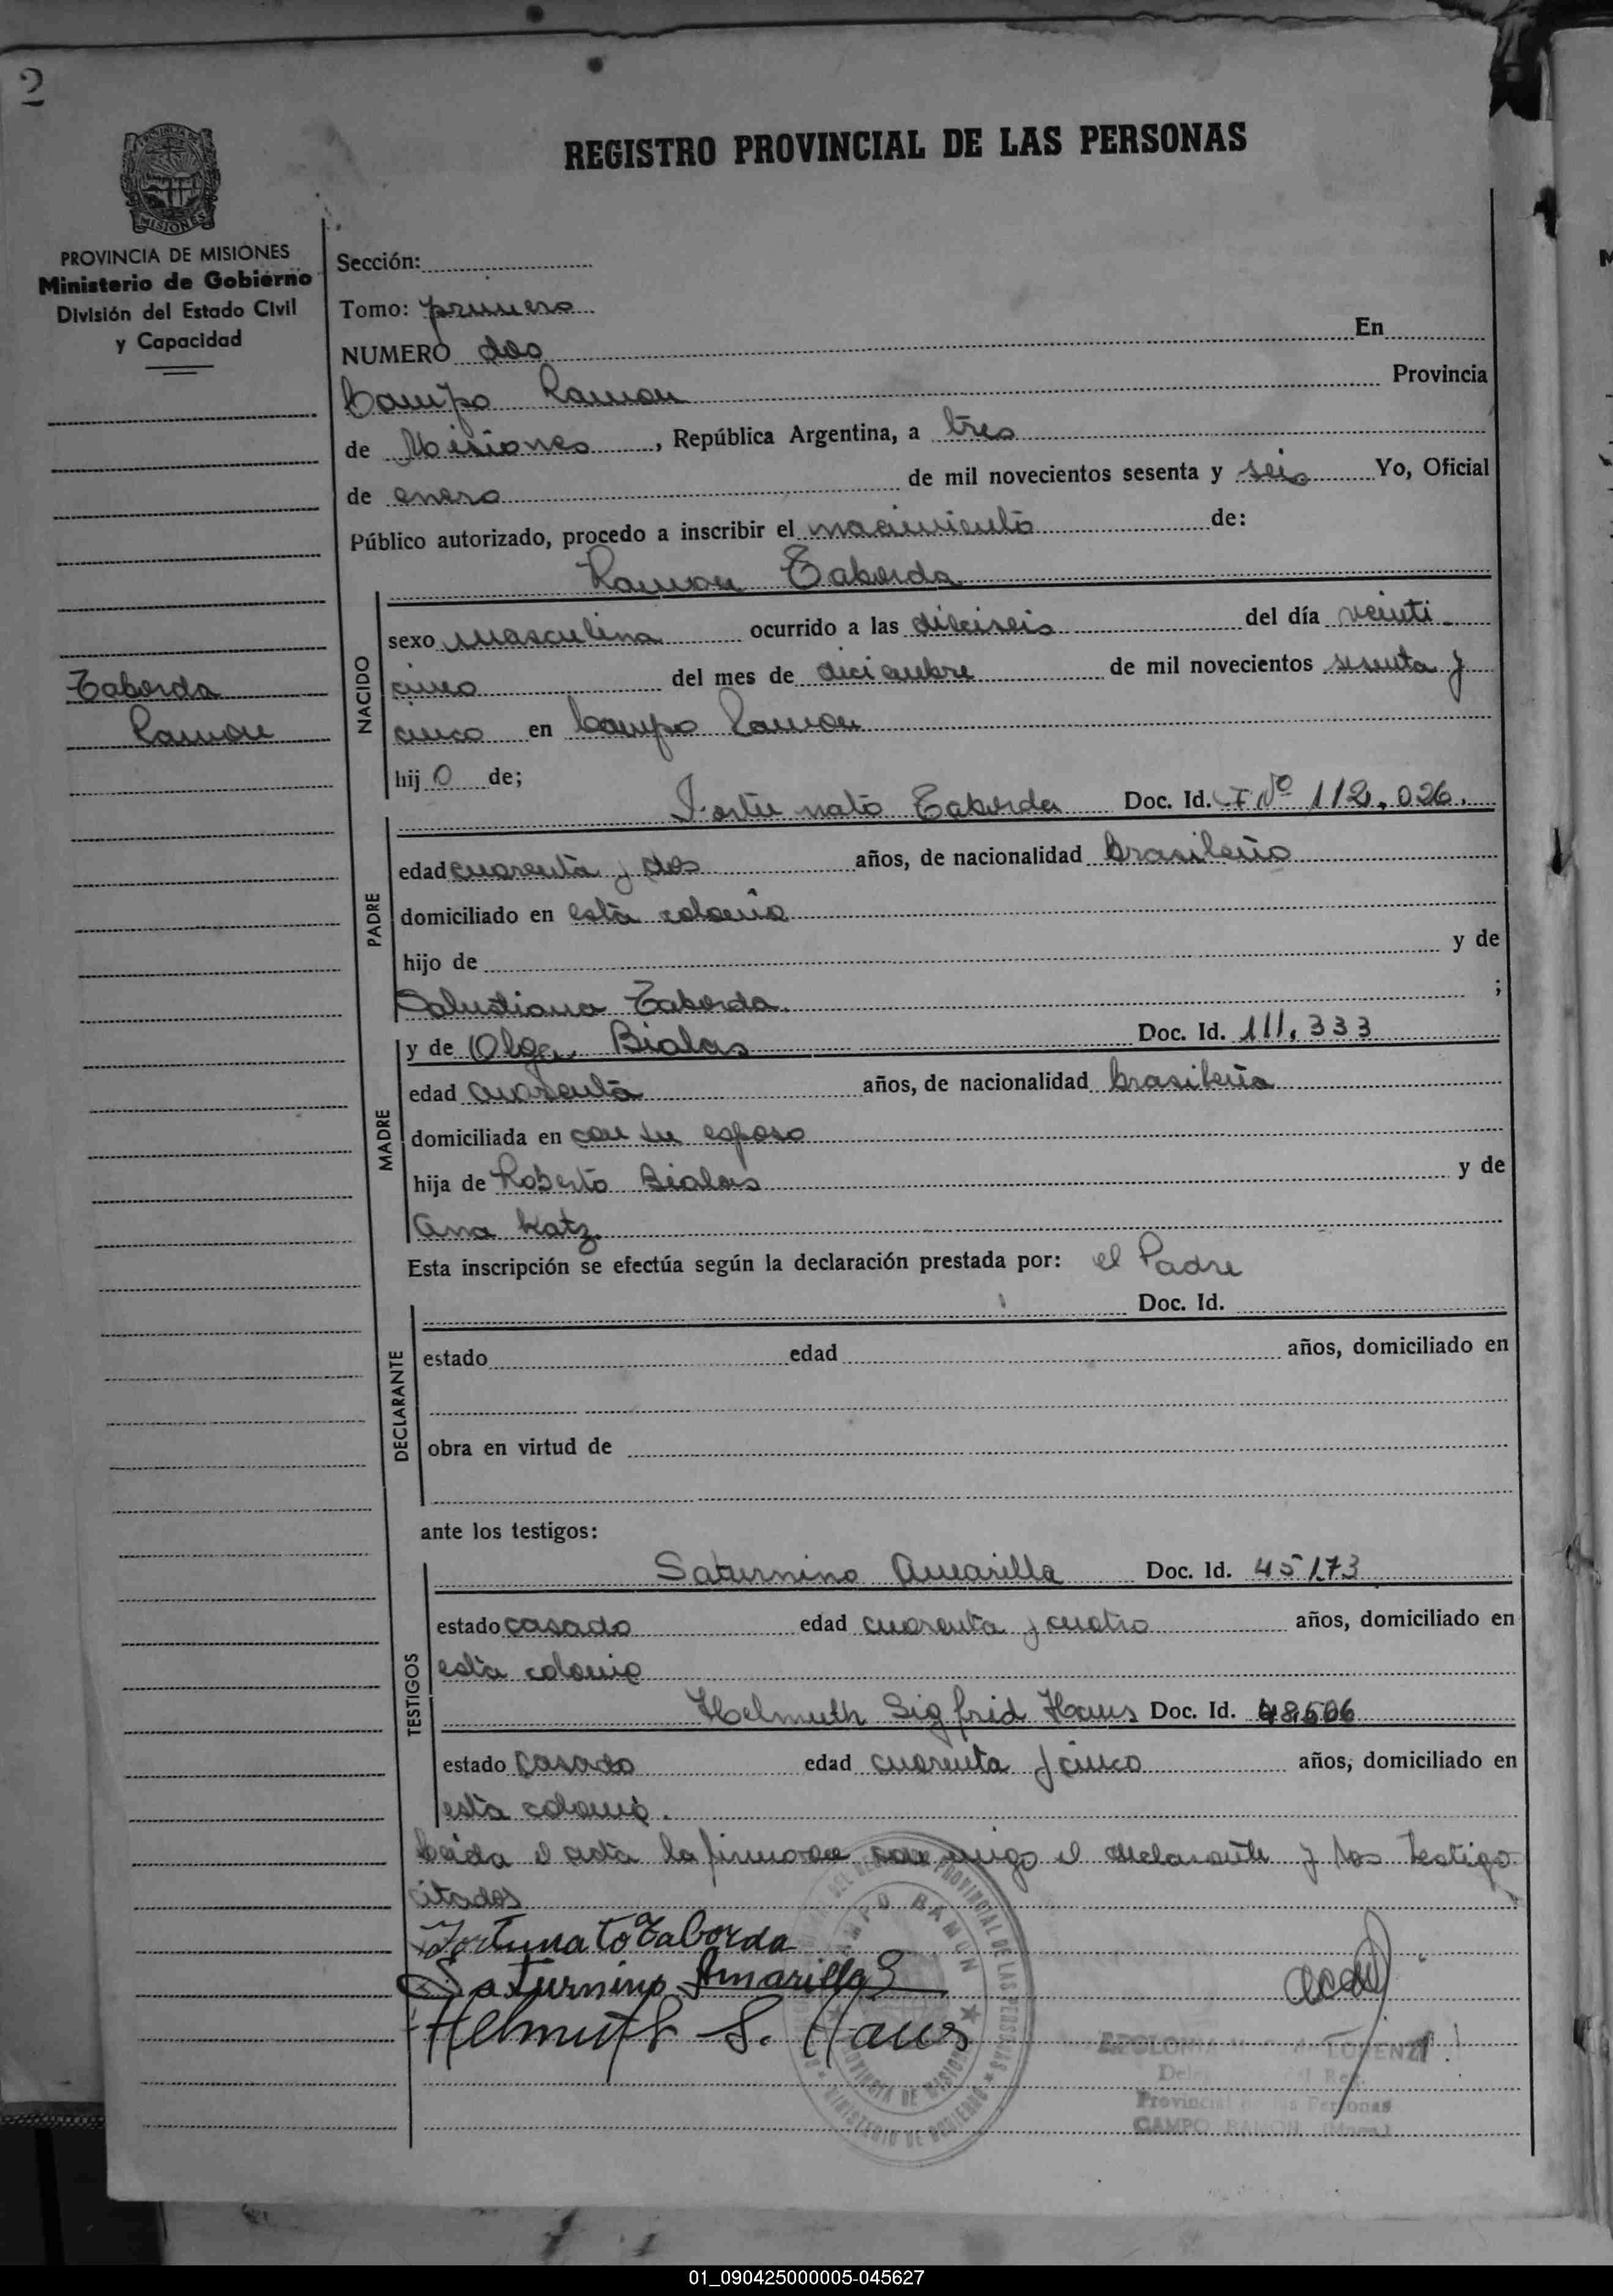 2
REGISTRO PROVINCIAL DE LAS PERSONAS
MISIONES
PROVINCIA DE MISIONES
Ministerio de Gobierno
División del Estado Civil
y Capacidad
Taborda
Ramon
Sección:
Tomo: primero
NUMERO dos En
Campo Ramon Provincia
de Misiones, República Argentina, a tres
de enero de mil novecientos sesenta y seis Yo, Oficial
Público autorizado, procedo a inscribir el nacimiento de:
Ramon Taborda
NACIDO
sexo masculino ocurrido a las dieciseis del día veinti
cinco del mes de diciembre de mil novecientos sesenta y
cinco en Campo Ramon
hij o de;
PADRE
Fortunato Taborda Doc. Id. CI Nº 112.026.
edad cuarenta y dos años, de nacionalidad brasileño
domiciliado en esta colonia
hijo de y de
Salustiana Taborda. ;
MADRE
y de Olga Bialas Doc. Id. 111.333
edad cuarenta años, de nacionalidad brasileña
domiciliada en con su esposo
hija de Roberto Bialas y de
Ana Katz.
Esta inscripción se efectúa según la declaración prestada por: el Padre
DECLARANTE
Doc. Id.
estado edad años, domiciliado en
obra en virtud de
ante los testigos:
TESTIGOS
Saturnino Amarilla Doc. Id. 45173
estado casado edad cuarenta y cuatro años, domiciliado en
esta colonia
Helmuth Sigfrid Haus Doc. Id. 48.606
estado casado edad cuarenta y cinco años, domiciliado en
esta colonia.
Leida el acta la firman conmigo el declarante y los testigo
citados
Fortunato Taborda
Saturnino Amarilla
Helmuth S. Haus
PROVINCIAL DE LAS PERSONAS
CAMPO RAMON
PROVINCIA DE MISIONES
MINISTERIO DE GOBIERNO
APOLONIA LORENZI
Reg.
Provincial de las Personas
CAMPO RAMON (Mnes.)
01_090425000005-045627